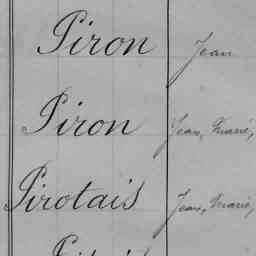 Piron Jean
Piron Jean, Marie,
Pirotais Jean, Marie,